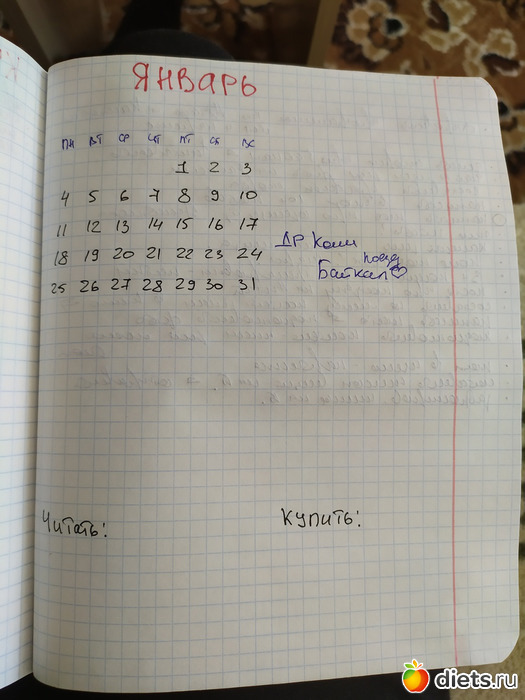 ЯНВАРЬ
ПН ВТ СР ЧТ ПТ СБ ВС
1 2 3
4 5 6 7 8 9 10
11 12 13 14 15 16 17
18 19 20 21 22 23 24
25 26 27 28 29 30 31
ДР Коли
поезд
Байкал♡
Читать:
Купить:
diets.ru